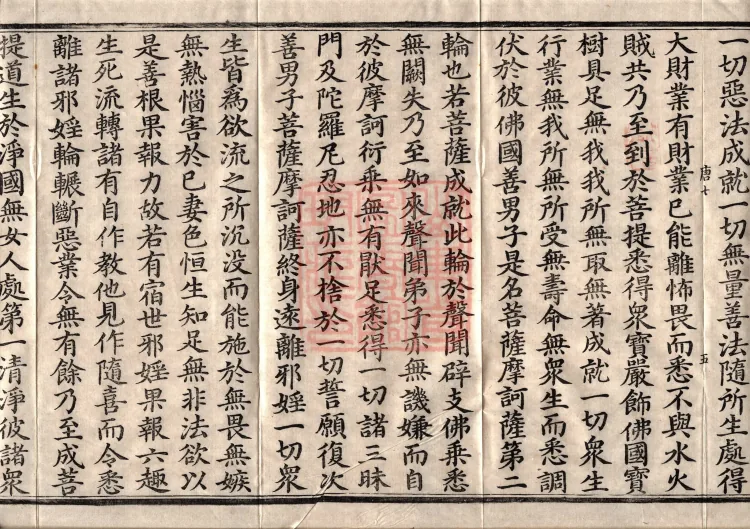 一切惡法成就一切無量善法隨所生處得
大財業有財業已能離怖畏而悉不與水火
唐七
五
賊共乃至到於菩提悉得衆寶嚴飾佛國寶
樹具足無我我所無取無著成就一切衆生
行業無我所無所受無壽命無衆生而悉調
伏於彼佛國善男子是名菩薩摩訶薩第二
輪也若菩薩成就此輪於聲聞辟支佛乗悉
無闕失乃至如來聲聞弟子亦無譏嫌而自
於彼摩訶衍乗無有猒足悉得一切諸三昧
門及陀羅尼忍地亦不捨於一切誓願復次
善男子菩薩摩訶薩終身遠離邪婬一切衆
生皆爲欲流之所沉没而能施於無畏無嫉
無熱惱害於已妻色恒生知足無非法欲以
是善根果報力故若有宿世邪婬果報六趣
生死流轉諸有自作教他見作隨喜而令悉
離諸邪婬輪轢斷惡業令無有餘乃至成菩
提道生於淨國無女人處第一清淨彼諸衆